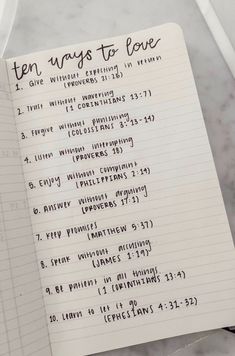 ten ways to love
1. Give without expecting in return
(PROVERBS 21:26)
2. Trust without wavering
(1 CORINTHIANS 13:7)
3. Forgive without punishing
(COLOSSIANS 3:13-14)
4. Listen without interrupting
(PROVERBS 18)
5. Enjoy without complaint
(PHILIPPIANS 2:14)
6. Answer without arguing
(PROVERBS 17:1)
7. Keep promises
(MATTHEW 5:37)
8. Speak without accusing
(JAMES 1:19)
9. Be patient in all things
(1 CORINTHIANS 13:4)
10. Learn to let it go
(EPHESIANS 4:31-32)